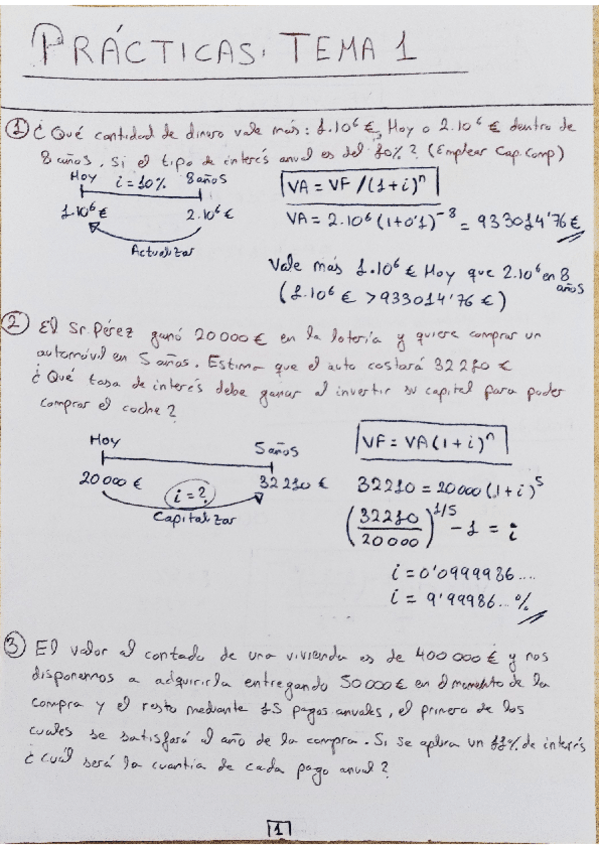 PRÁCTICAS. TEMA 1
① ¿Qué cantidad de dinero vale más: 1.10⁶ €, Hoy o 2.10⁶ € dentro de
8 años. Si el tipo de interés anual es del 10%? (Emplear Cap. Comp)
Hoy i=10% 8 años
1.10⁶ € 2.10⁶ €
Actualizar
VA = VF /(1+i)ⁿ
VA = 2.10⁶ (1+0'1)⁻⁸ = 933014'76 €
Vale más 1.10⁶ € Hoy que 2.10⁶ en 8
años
(1.10⁶ € > 933014'76 €)
② El Sr. Pérez ganó 20000 € en la lotería y quiere comprar un
automóvil en 5 años. Estima que el auto costará 32210 €
¿Qué tasa de interés debe ganar al invertir su capital para poder
comprar el coche?
Hoy 5 años
20000 € i=? 32210 €
Capitalizar
VF = VA (1+i)ⁿ
32210 = 20000 (1+i)⁵
(32210/20000)^1/5 - 1 = i
i = 0'0999986....
i = 9'99986...%
③ El valor al contado de una vivienda es de 400000 € y nos
disponemos a adquirirla entregando 50000 € en el momento de la
compra y el resto mediante 15 pagos anuales, el primero de los
cuales se satisfará al año de la compra. Si se aplica un 11% de interés
¿Cuál será la cuantía de cada pago anual?
1